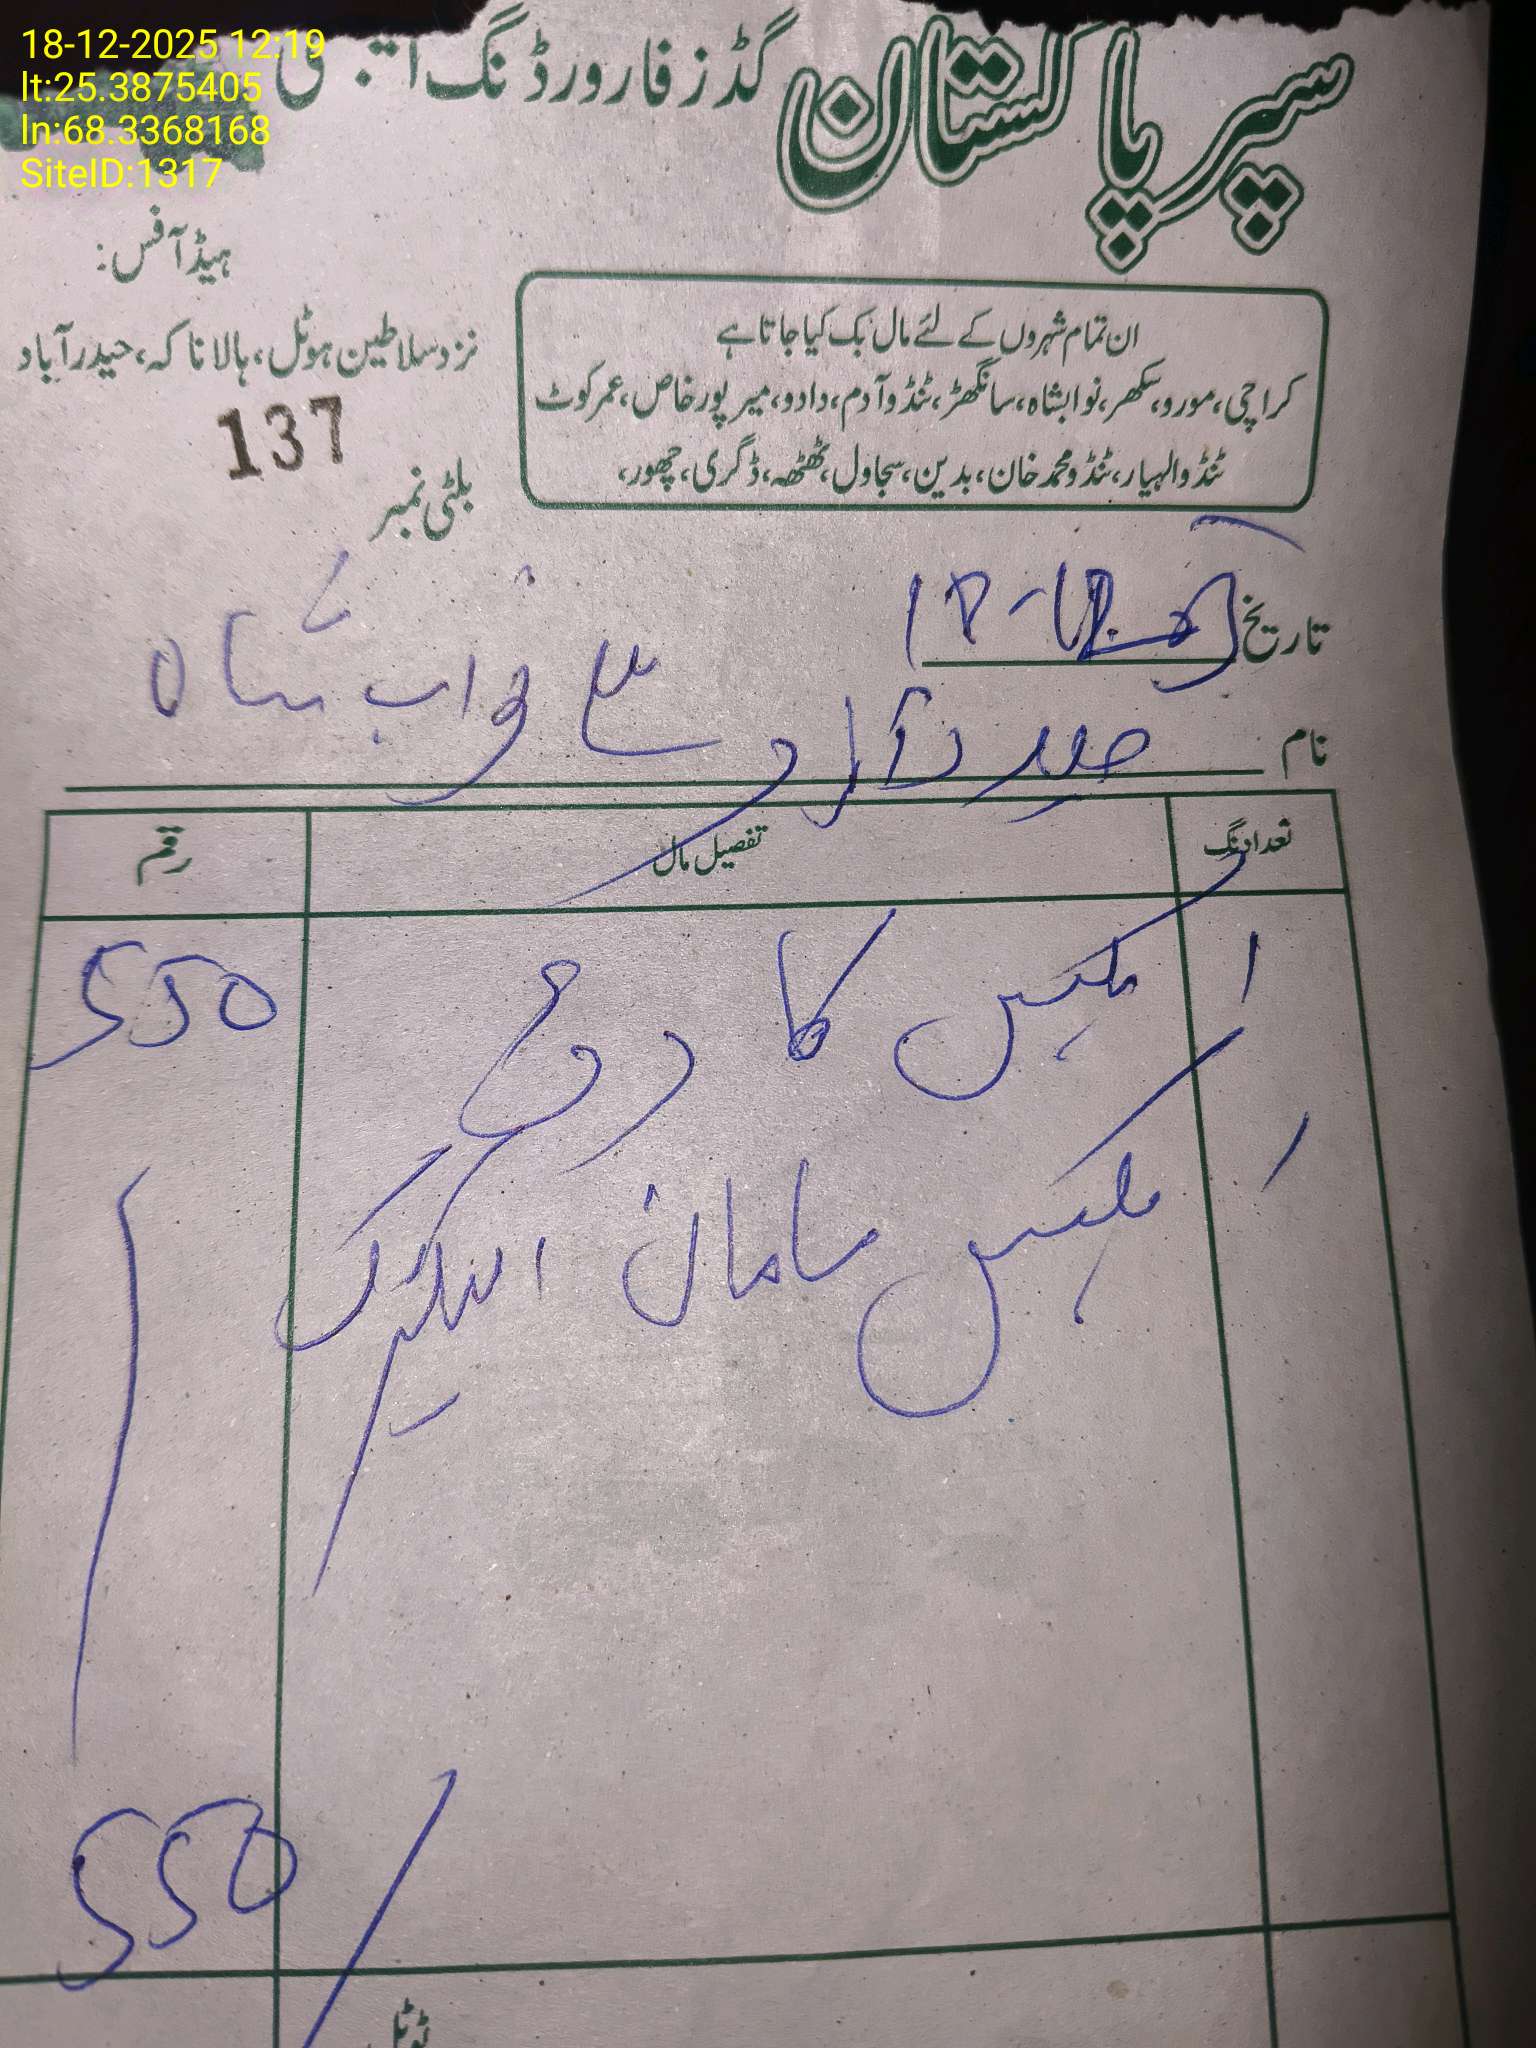 18-12-2025 12:19
lt:25.3875405
ln:68.3368168
SiteID:1317
سپر پاکستان گڈز فارورڈنگ ایجنسی
ہیڈ آفس:
نزد سلاطین ہوٹل، ہالا ناکہ، حیدرآباد
ان تمام شہروں کے لئے مال بک کیا جاتا ہے
کراچی، مورو، سکھر، نوابشاہ، سانگھڑ، ٹنڈوآدم، دادو، میرپورخاص، عمرکوٹ
ٹنڈوالہیار، ٹنڈومحمدخان، بدین، سجاول، ٹھٹھہ، ڈگری، چھور،
137
بلٹی نمبر
تاریخ
نام حیدرآباد سے نواب شاہ
تعداد نگ تفصیل مال رقم
1 بکس کا 550
1 بکس سامان الیکٹرک
550
ٹوٹل